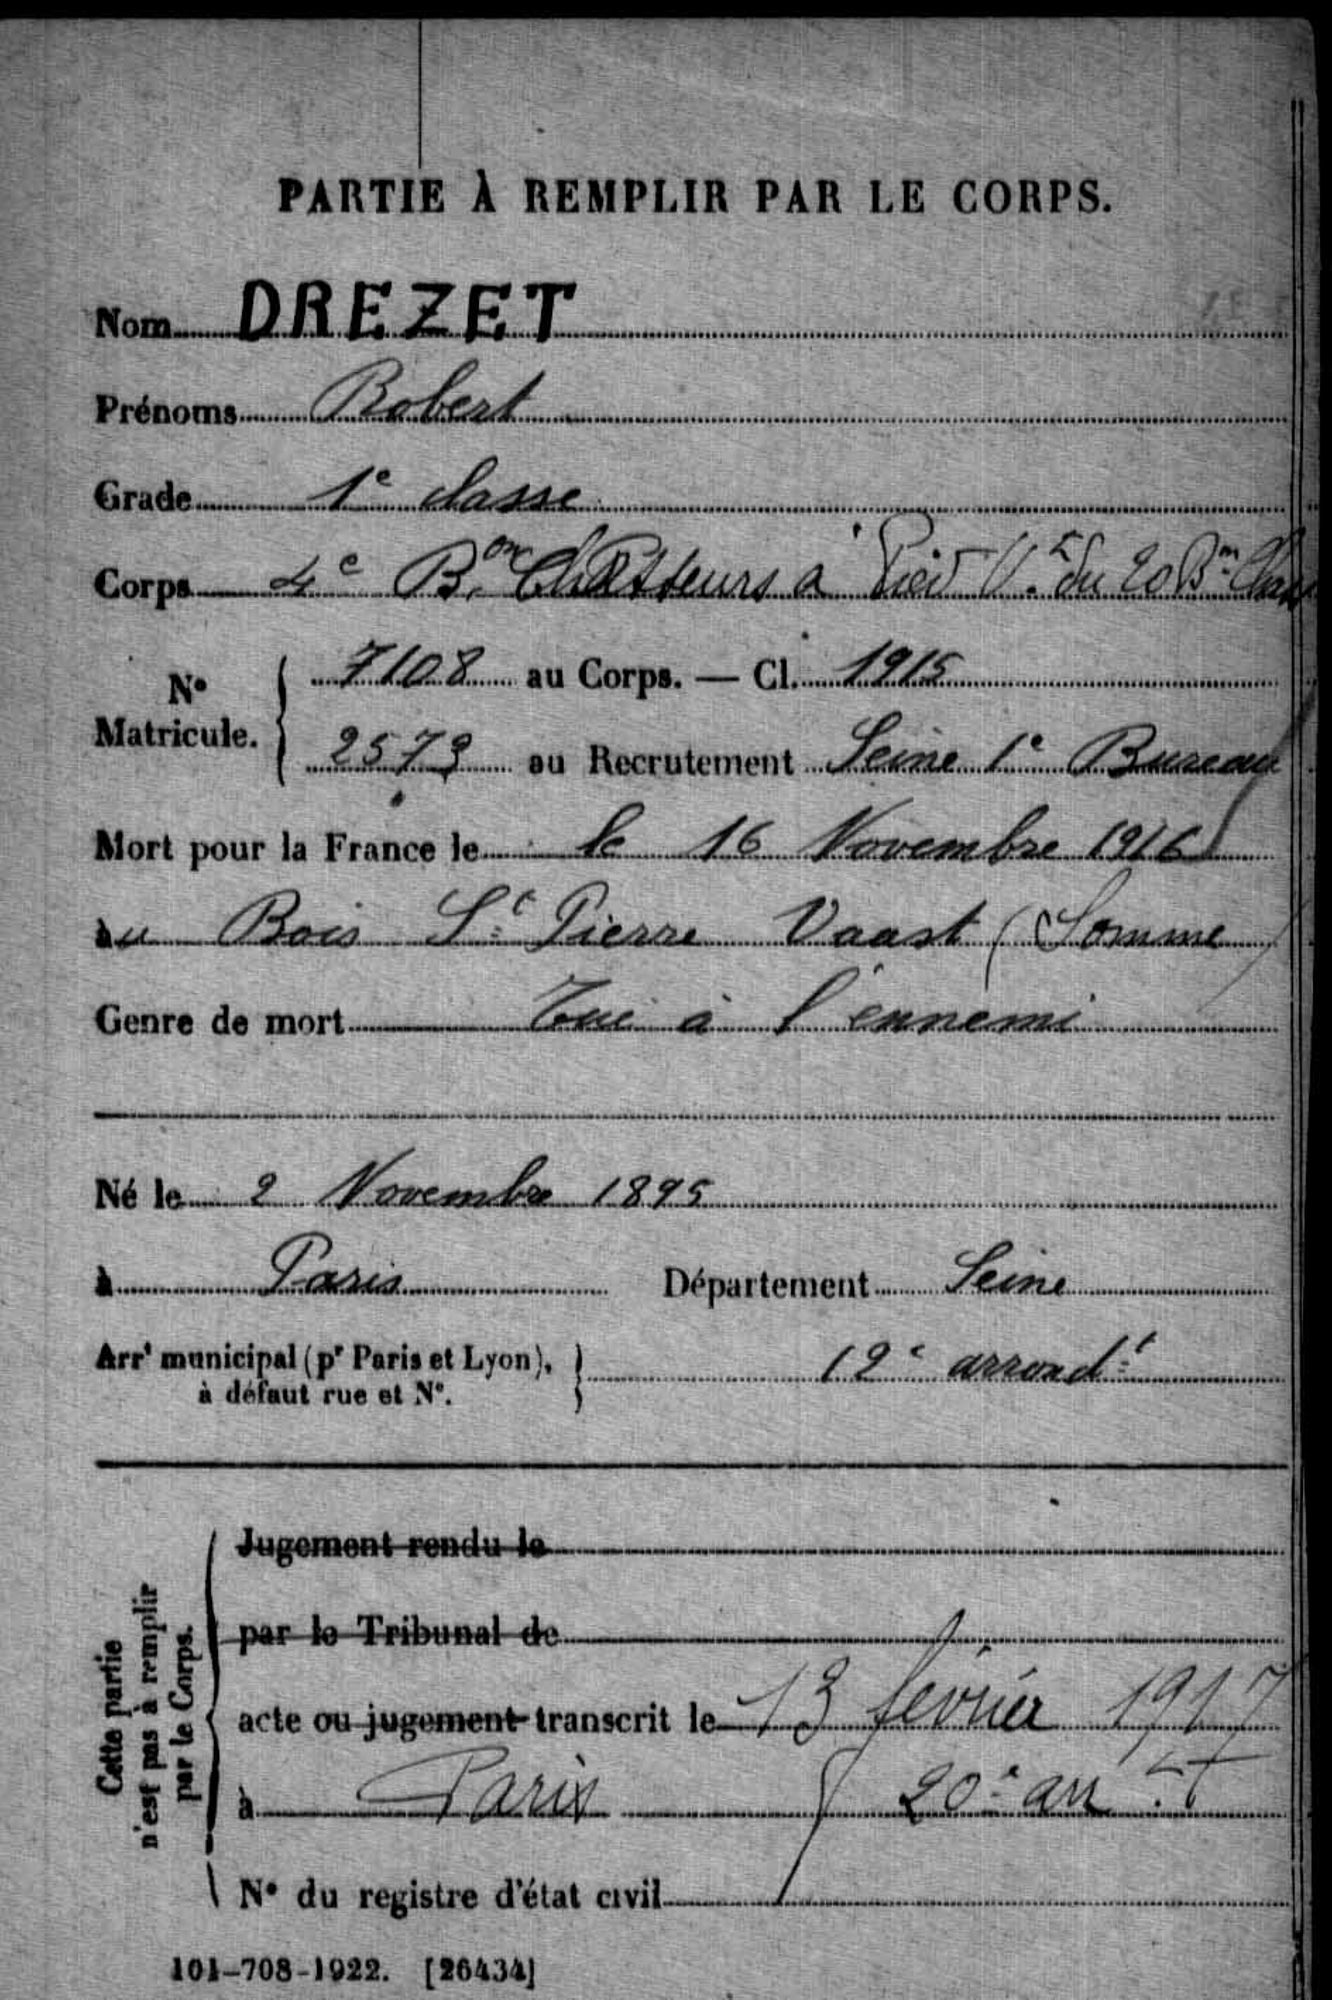 PARTIE À REMPLIR PAR LE CORPS.
Nom DREZET
Prénoms Robert
Grade 1e classe
Corps 4e Bon Chasseurs à Pied Vt du 20 Bon Chas
No Matricule. 7108 au Corps. — Cl. 1915
2573 au Recrutement Seine 1e Bureau
Mort pour la France le le 16 Novembre 1916
au Bois St Pierre Vaast (Somme)
Genre de mort Tué à l'ennemi
Né le 2 Novembre 1895
à Paris Département Seine
Arrt municipal (pr Paris et Lyon), à défaut rue et No. 12e arrondt
Cette partie n'est pas à remplir par le Corps.
Jugement rendu le
par le Tribunal de
acte ou jugement transcrit le 13 février 1917
à Paris 20e arrt
No du registre d'état civil
101-708-1922. [26434]